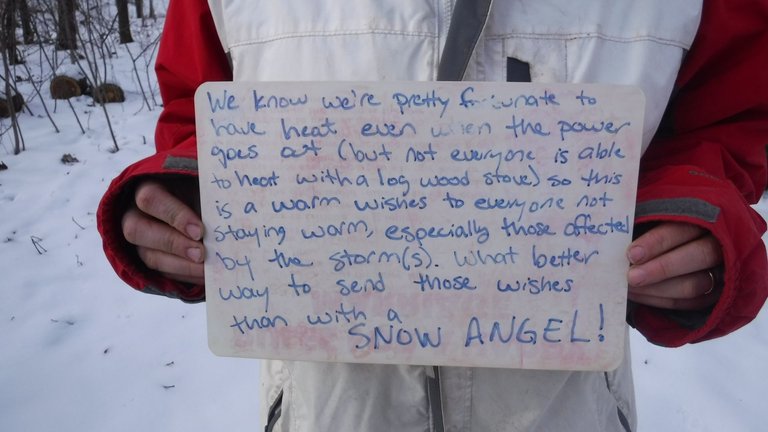 We know we're pretty fortunate to
have heat even when the power
goes out (but not everyone is able
to heat with a log wood stove) so this
is a warm wishes to everyone not
staying warm, especially those affected
by the storm(s). What better
way to send those wishes
than with a
SNOW ANGEL!